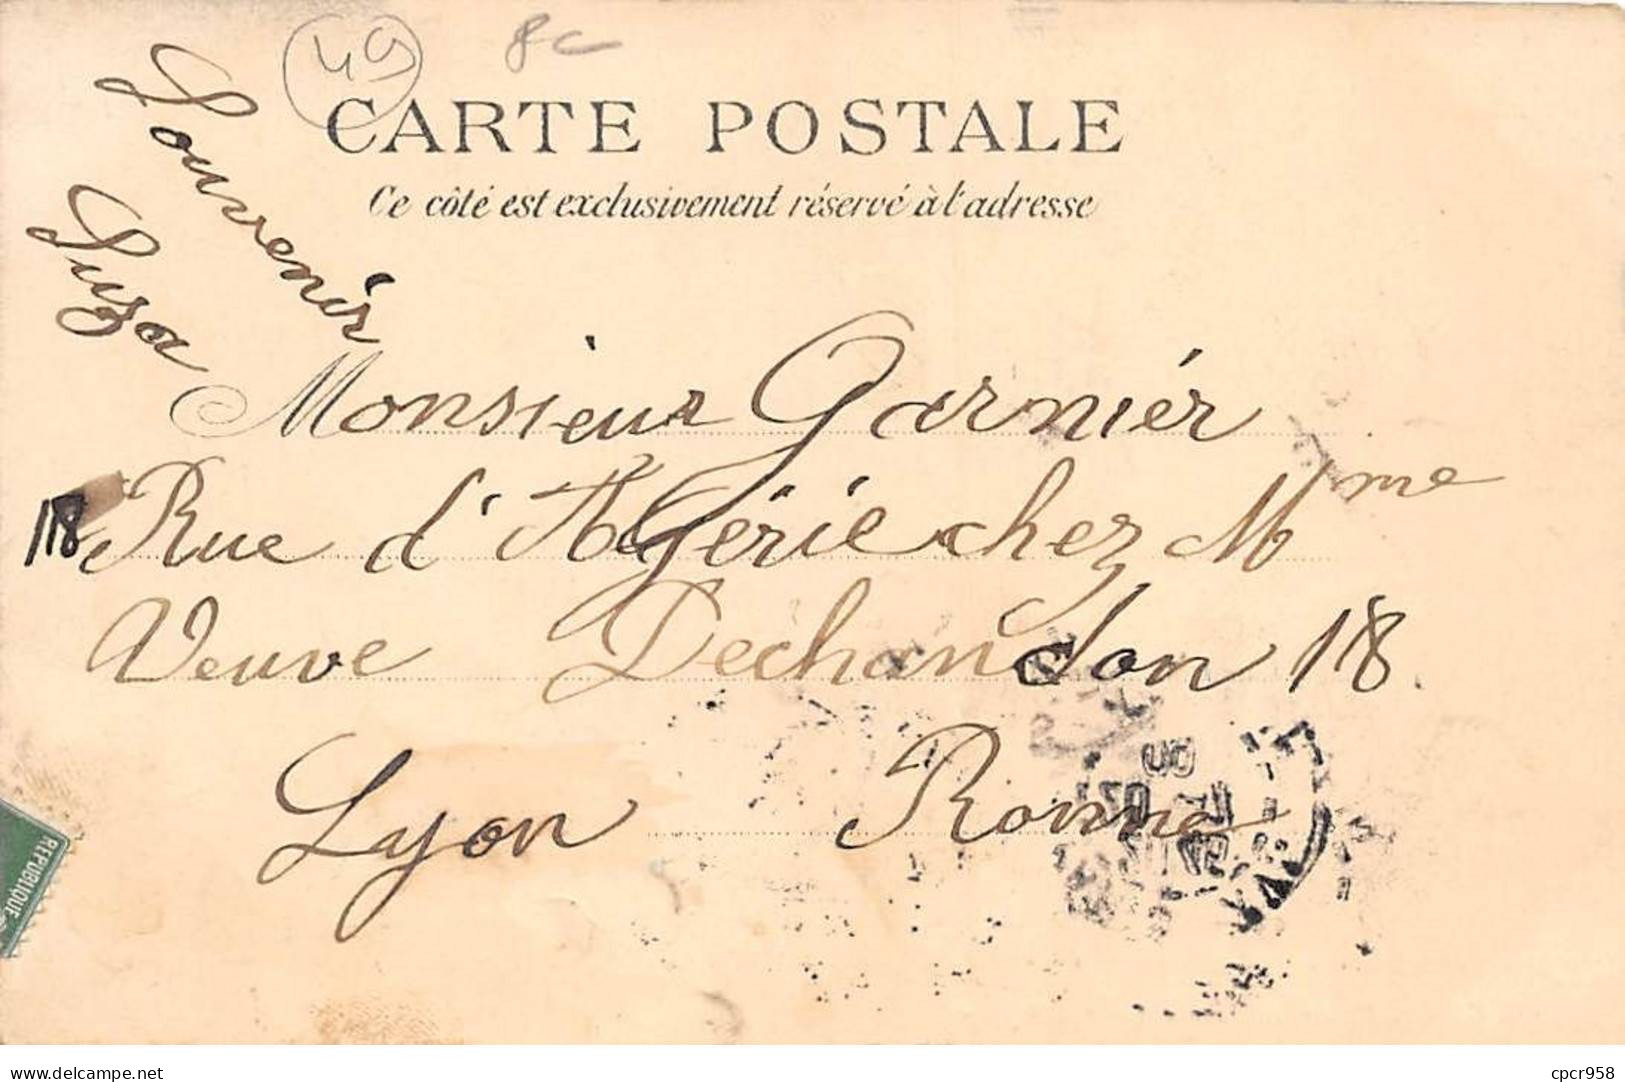 49
8c
CARTE POSTALE
Ce côté est exclusivement réservé à l'adresse
Souvenir
Suza
Monsieur Garnier
118 Rue d'Algérie chez Mme
Veuve Dechandon 18
Lyon Ronne
REPUBLIQUE
delcampe.net
cpcr958